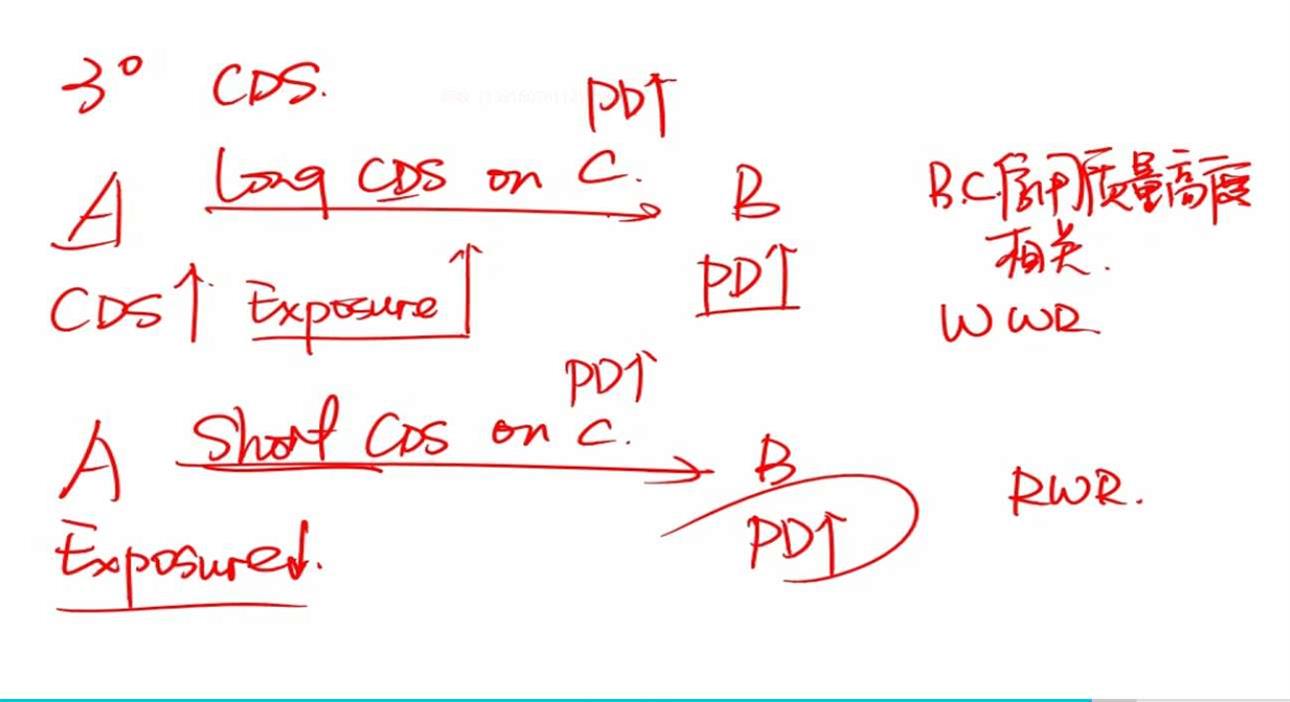 3° CDS.
PD↑
A Long CDS on C. B
B.C.信用质量高度
相关.
CDS↑ Exposure↑ PD↑
WWR
PD↑
A Short CDS on C. B
RWR.
Exposure↓. PD↑